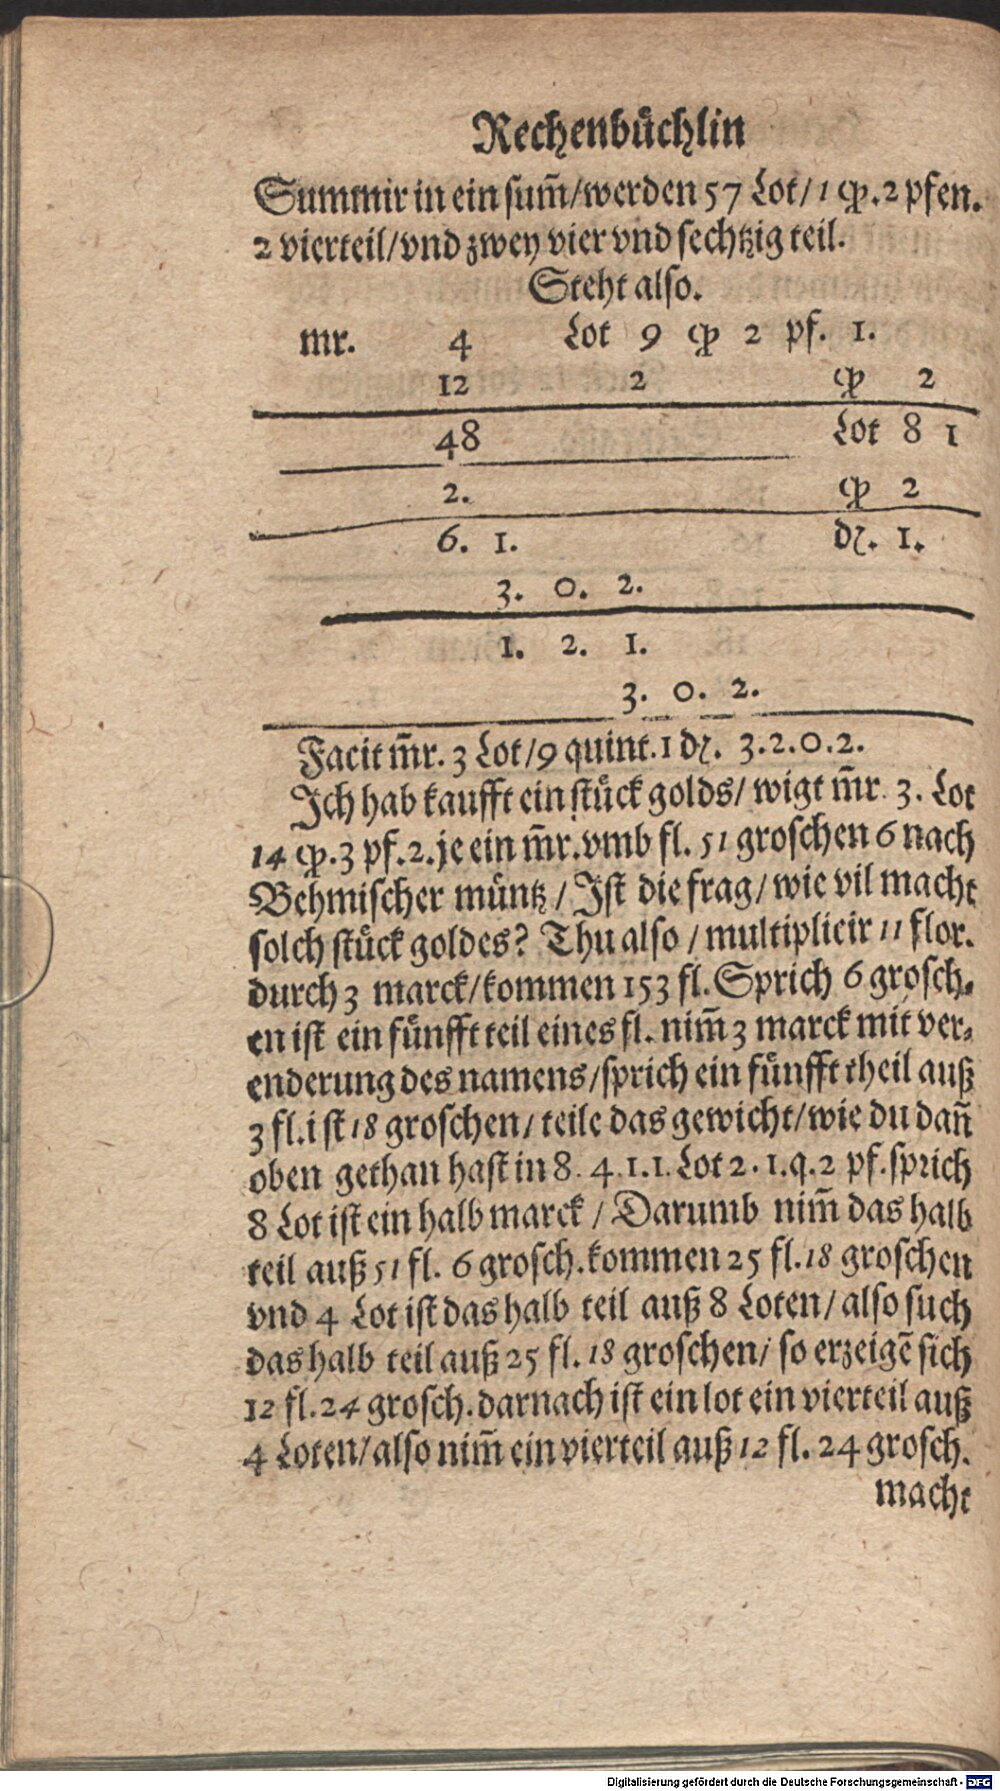 Rechenbuͤchlin
Summir in ein sum̃/werden 57 Lot/1 qͥ.2 pfen.
2 vierteil/vnd zwey vier vnd sechtzig teil.
Steht also.
mr. 4 Lot 9 qͥ 2 pf. 1.
12 2 qͥ 2
48 Lot 8 1
2. qͥ 2
6. 1. dₐ. 1.
3. 0. 2.
1. 2. 1.
3. 0. 2.
Facit m̃r. 3 Lot/9 quint.1 dₐ. 3.2.0.2.
Ich hab kaufft ein stuͤck golds/ wigt m̃r. 3. Lot
14 qͥ.3 pf.2.je ein m̃r.vmb fl. 51 groschen 6 nach
Behmischer muͤntz / Ist die frag/ wie vil macht
solch stuͤck goldes? Thu also / multiplicir 11 flor.
durch 3 marck/kommen 153 fl. Sprich 6 grosch⸗
en ist ein fuͤnfft teil eines fl. nim̃ 3 marck mit ver⸗
enderung des namens/sprich ein fuͤnfft theil auß
3 fl.ist 18 groschen/ teile das gewicht/wie du dañ
oben gethan hast in 8. 4.1.1. Lot 2.1.q.2 pf.sprich
8 Lot ist ein halb marck / Darumb nim̃ das halb
teil auß 51 fl. 6 grosch.kommen 25 fl.18 groschen
vnd 4 Lot ist das halb teil auß 8 Loten/ also such
das halb teil auß 25 fl. 18 groschen/ so erzeigẽ sich
12 fl.24 grosch.darnach ist ein lot ein vierteil auß
4 Loten/also nim̃ ein vierteil auß 12 fl. 24 grosch.
macht
Digitalisierung gefördert durch die Deutsche Forschungsgemeinschaft - DFG